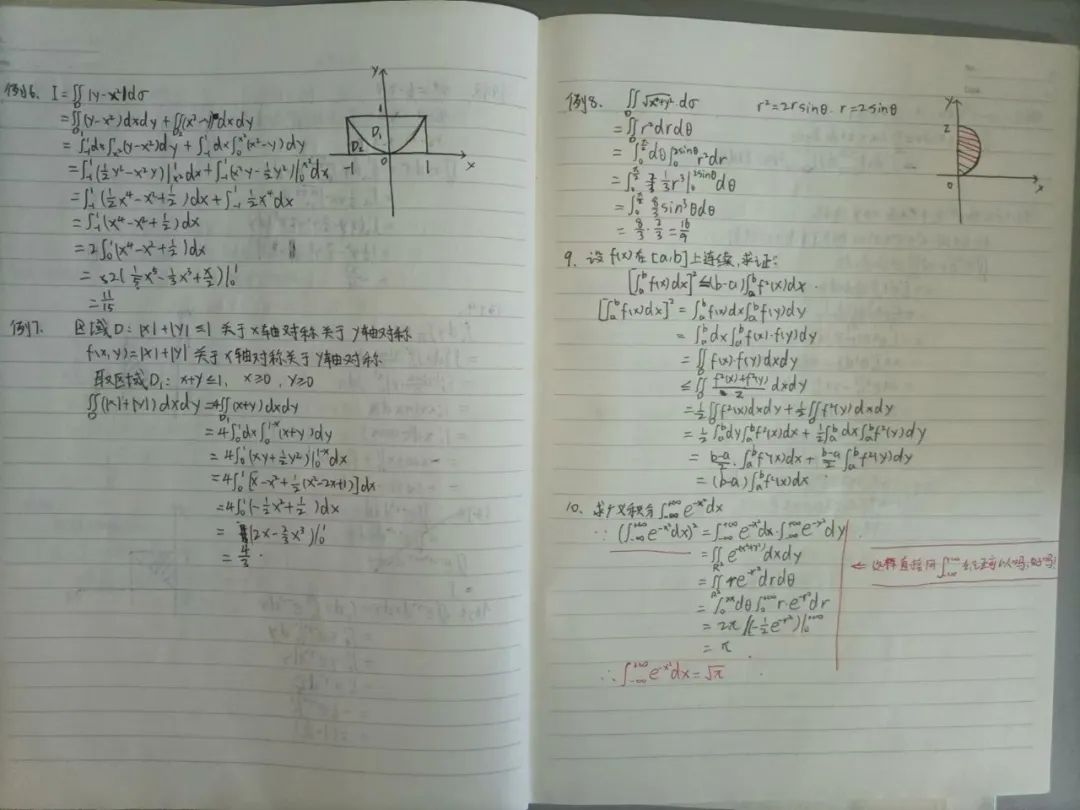 例6、I=∬_D |y-x²|dσ
=∬_{D₁}(y-x²)dxdy+∬_{D₂}(x²-y)dxdy
=∫_{-1}^{1}dx∫_{x²}^{1}(y-x²)dy+∫_{-1}^{1}dx∫_{0}^{x²}(x²-y)dy
=∫_{-1}^{1}(½y²-x²y)|_{x²}^{1}dx+∫_{-1}^{1}(x²y-½y²)|_{0}^{x²}dx
=∫_{-1}^{1}(½x⁴-x²+½)dx+∫_{-1}^{1}½x⁴dx
=∫_{-1}^{1}(x⁴-x²+½)dx
=2∫_{0}^{1}(x⁴-x²+½)dx
=2(⅕x⁵-⅓x³+x/2)|_{0}^{1}
=11/15
y
1
D₁
D₂
-1 0 1 x
例7、 区域D:|x|+|y|≤1 关于x轴对称关于y轴对称
f(x,y)=|x|+|y| 关于x轴对称关于y轴对称
取区域D₁: x+y≤1, x≥0, y≥0
∬_D(|x|+|y|)dxdy=4∬_{D₁}(x+y)dxdy
=4∫_{0}^{1}dx∫_{0}^{1-x}(x+y)dy
=4∫_{0}^{1}(xy+½y²)|_{0}^{1-x}dx
=4∫_{0}^{1}[x-x²+½(x²-2x+1)]dx
=4∫_{0}^{1}(-½x²+½)dx
=(2x-⅔x³)|_{0}^{1}
=4/3.
例8、 ∬_D √(x²+y²)·dσ r²=2rsinθ. r=2sinθ
=∬_D r²drdθ
=∫_{0}^{π/2}dθ∫_{0}^{2sinθ}r²dr
=∫_{0}^{π/2}⅓r³|_{0}^{2sinθ}dθ
=∫_{0}^{π/2}8/3 sin³θdθ
=8/3·2/3=16/9
y
2
0 x
9、设f(x)在[a,b]上连续,求证:
[∫_{a}^{b}f(x)dx]²≤(b-a)∫_{a}^{b}f²(x)dx.
[∫_{a}^{b}f(x)dx]²=∫_{a}^{b}f(x)dx∫_{a}^{b}f(y)dy
=∫_{a}^{b}dx∫_{a}^{b}f(x)·f(y)dy
=∬_D f(x)·f(y)dxdy
≤∬_D (f²(x)+f²(y))/2 dxdy
=½∬_D f²(x)dxdy+½∬_D f²(y)dxdy
=½∫_{a}^{b}dy∫_{a}^{b}f²(x)dx+½∫_{a}^{b}dx∫_{a}^{b}f²(y)dy
=(b-a)/2·∫_{a}^{b}f²(x)dx+(b-a)/2∫_{a}^{b}f²(y)dy
=(b-a)∫_{a}^{b}f²(x)dx
10、求广义积分∫_{-∞}^{+∞}e^{-x²}dx
∵(∫_{-∞}^{+∞}e^{-x²}dx)²=∫_{-∞}^{+∞}e^{-x²}dx·∫_{-∞}^{+∞}e^{-y²}dy
=∬_{R²}e^{-(x²+y²)}dxdy
=∬_{R²}re^{-r²}drdθ
=∫_{0}^{2π}dθ∫_{0}^{+∞}r·e^{-r²}dr
=2π(-½e^{-r²})|_{0}^{+∞}
=π
∴∫_{-∞}^{+∞}e^{-x²}dx=√π
← 这样直接用∫_{-∞}^{+∞}去证可以吗,好吗?